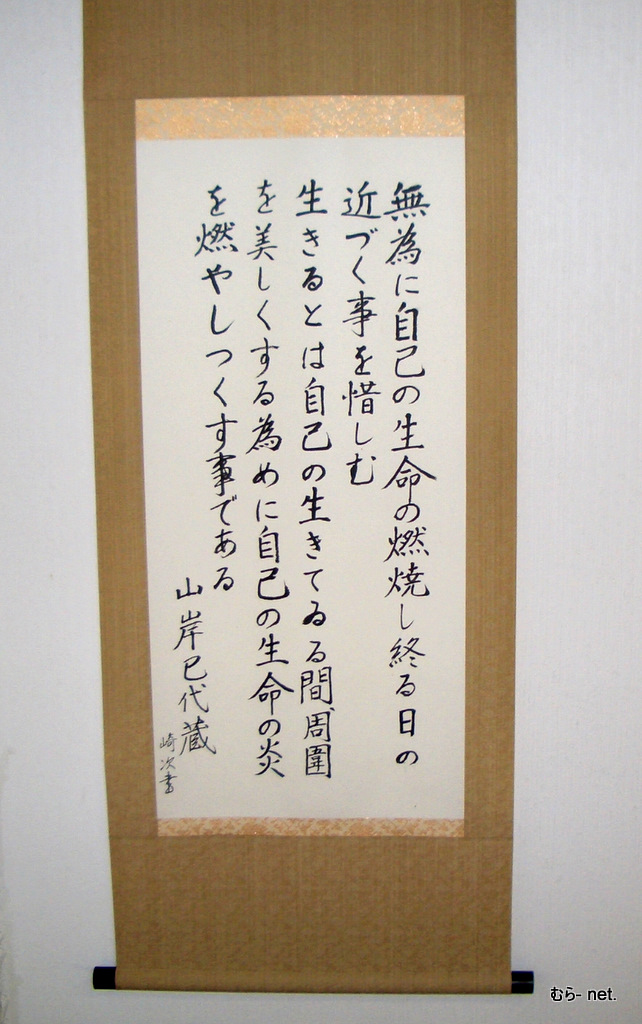 無為に自己の生命の燃焼し終る日の
近づく事を惜しむ
生きるとは自己の生きてゐる間、周圍
を美しくする為めに自己の生命の炎
を燃やしつくす事である
山岸巳代蔵
崎次書
むら- net.